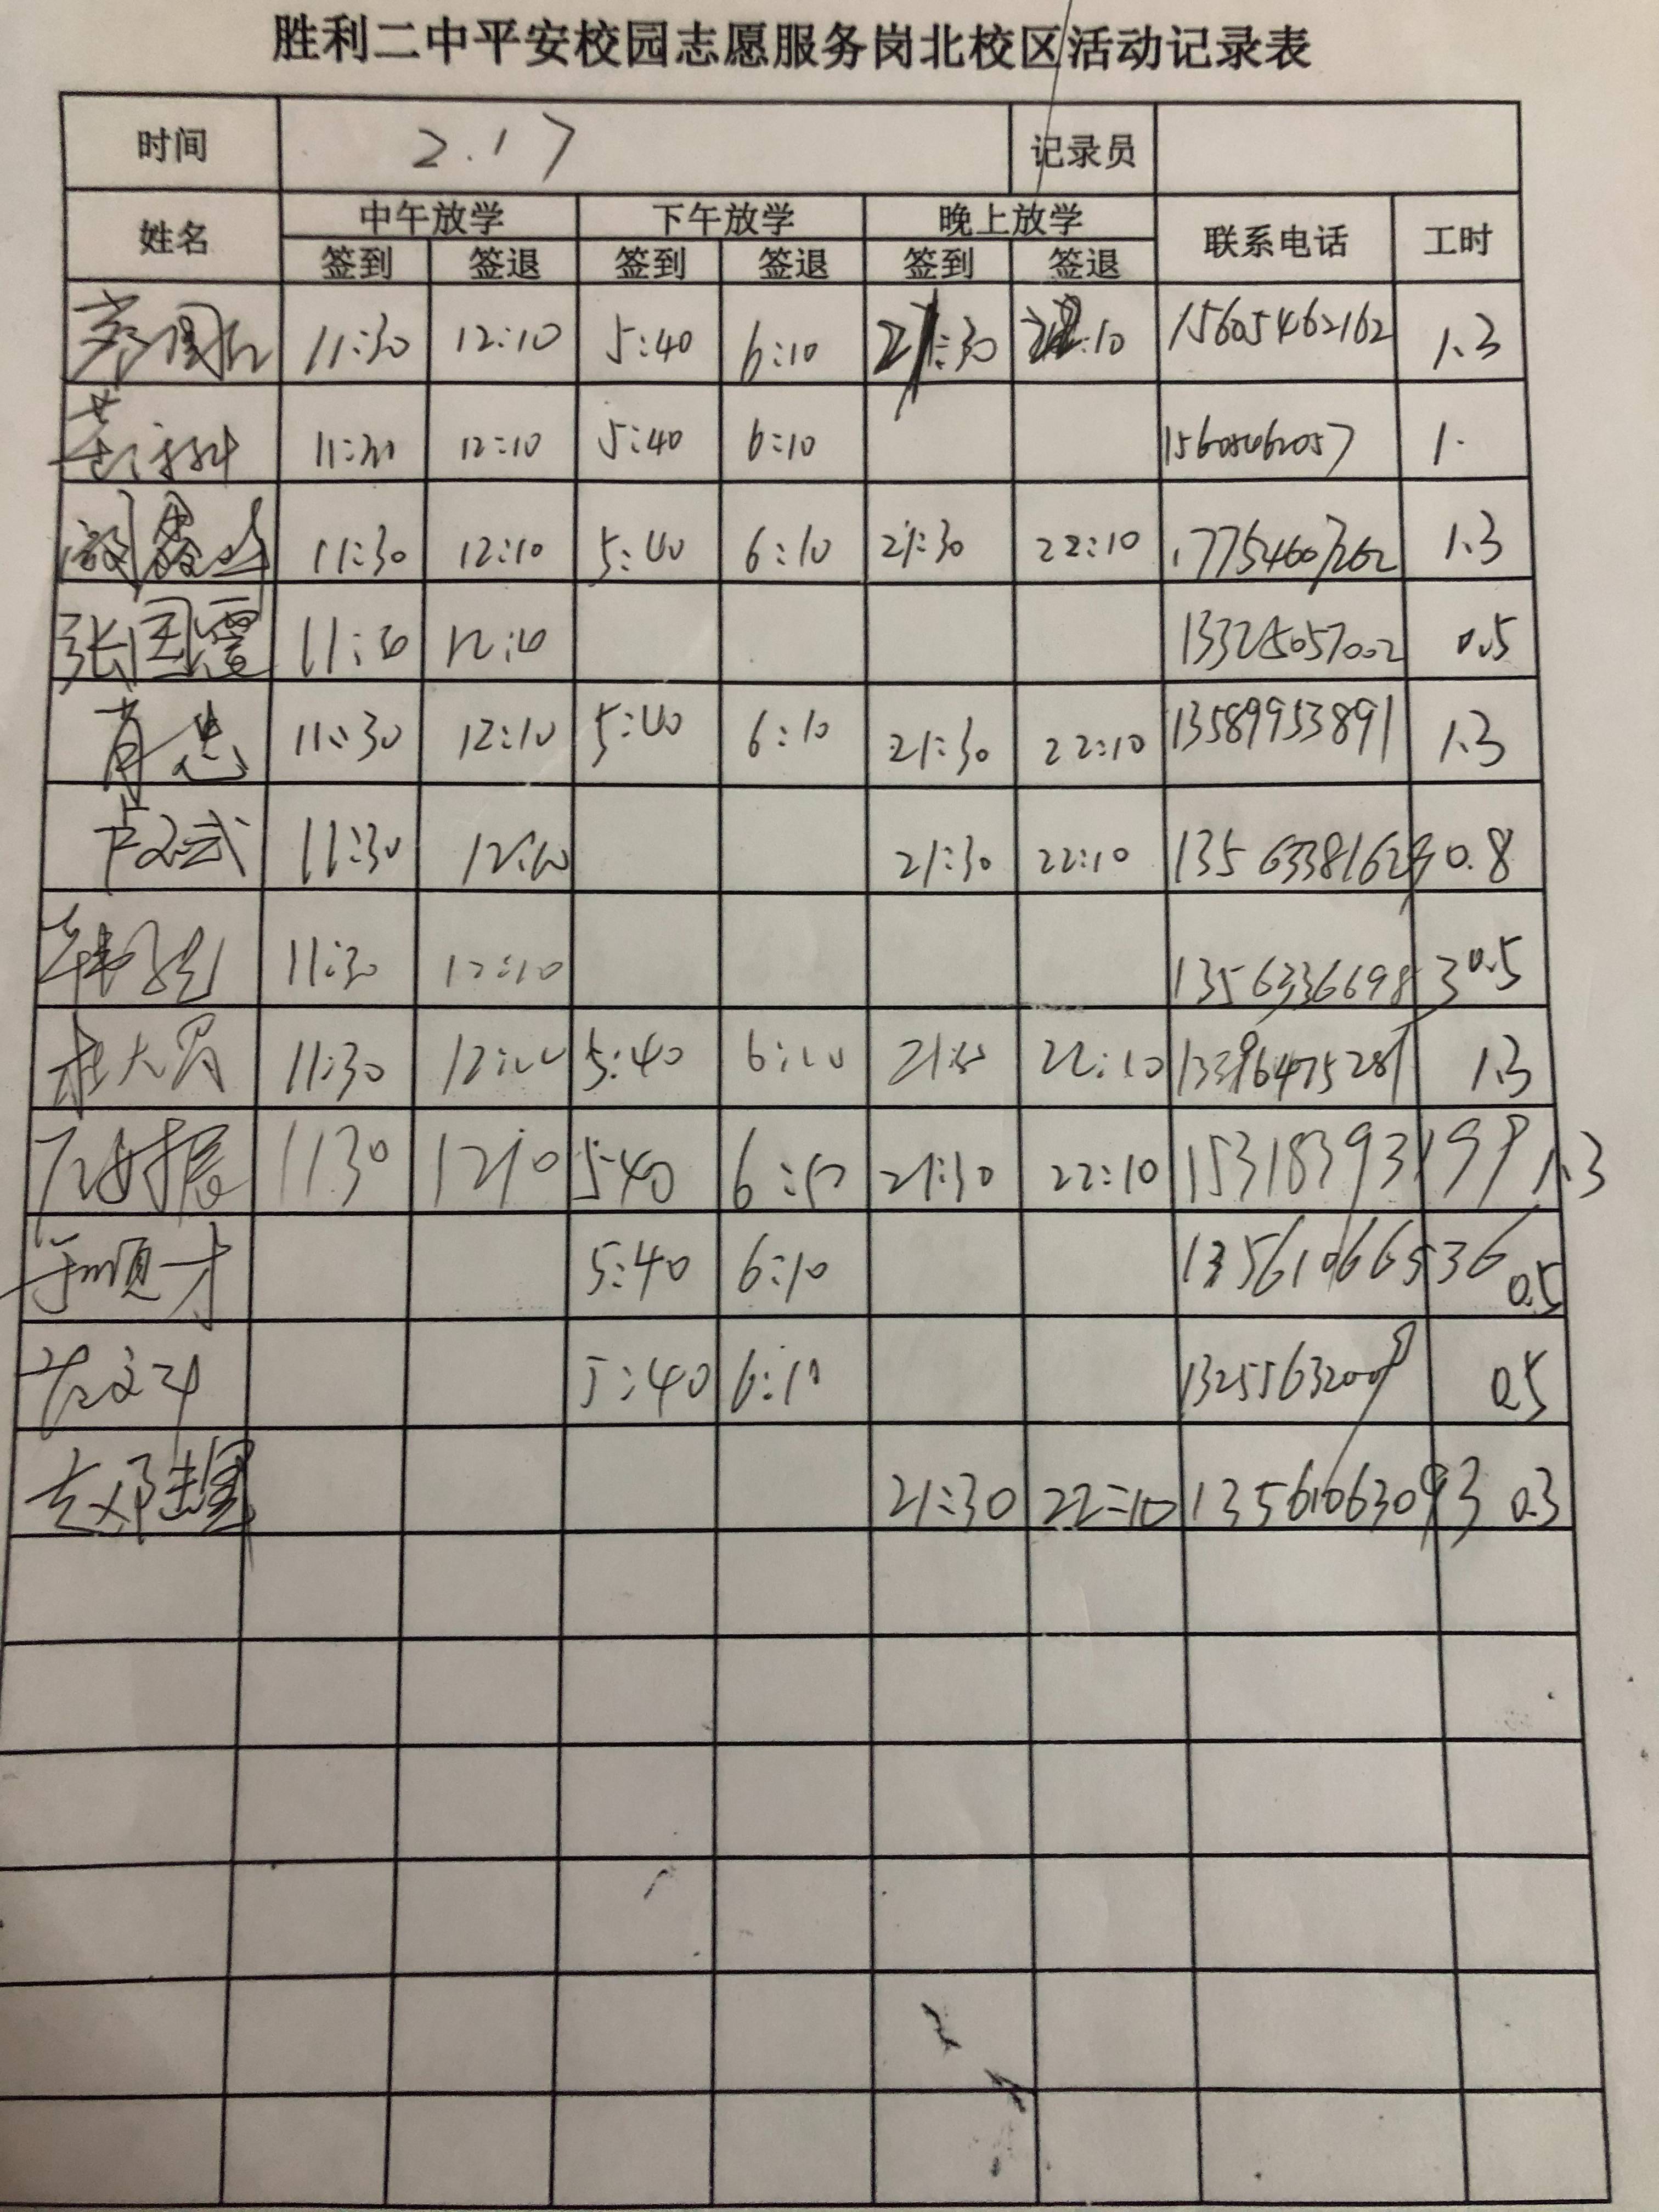 胜利二中平安校园志愿服务岗北校区活动记录表
时间 2.17 记录员
姓名 中午放学 下午放学 晚上放学 联系电话 工时
签到 签退 签到 签退 签到 签退
11:30 12:10 5:40 6:10 21:30 22:10 15605462162 1.3
11:30 12:10 5:40 6:10 15605462057 1.
11:30 12:10 5:40 6:10 21:30 22:10 17754607262 1.3
张国霞 11:30 12:10 0.5
肖忠 11:30 12:10 5:40 6:10 21:30 22:10 13589953891 1.3
11:30 12:10 21:30 22:10 0.8
11:30 12:10 13563366983 0.5
杜大胃 11:30 5:40 22:10 1.3
振 1130 1210 5:40 21:30 22:10 15318393199 1.3
于顺才 5:40 6:10 13561066536 0.5
5:40 6:10 0.5
赵 21:30 22:10 13561063093 0.3